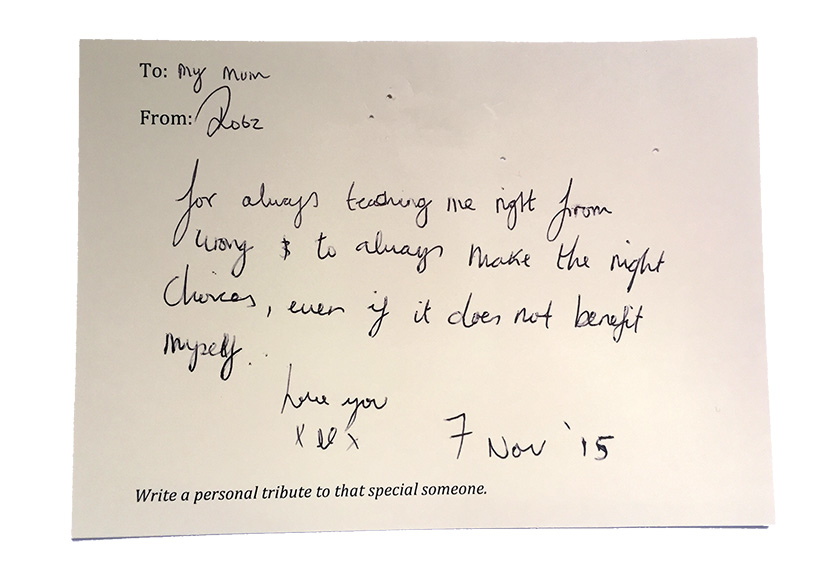 To: My Mum
From: Robz
for always teaching me right from
wrong & to always make the right
choices, even if it does not benefit
myself..
Love you
x x
7 Nov '15
Write a personal tribute to that special someone.